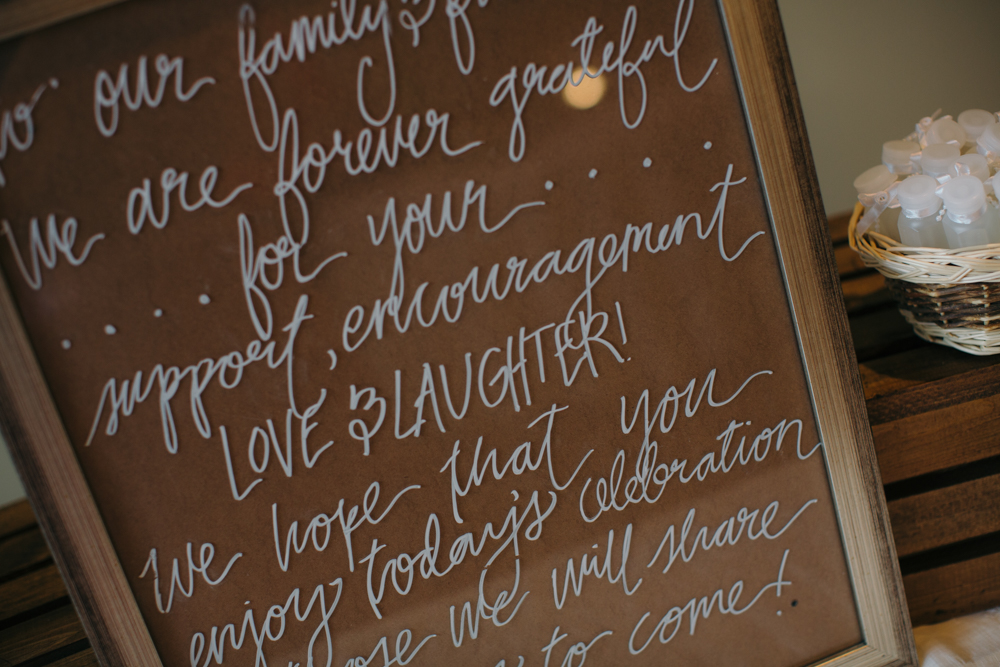 our family &
we are forever grateful
.... for your ....
support, encouragement
LOVE & LAUGHTER!
we hope that you
enjoy today's celebration
we will share
to come!